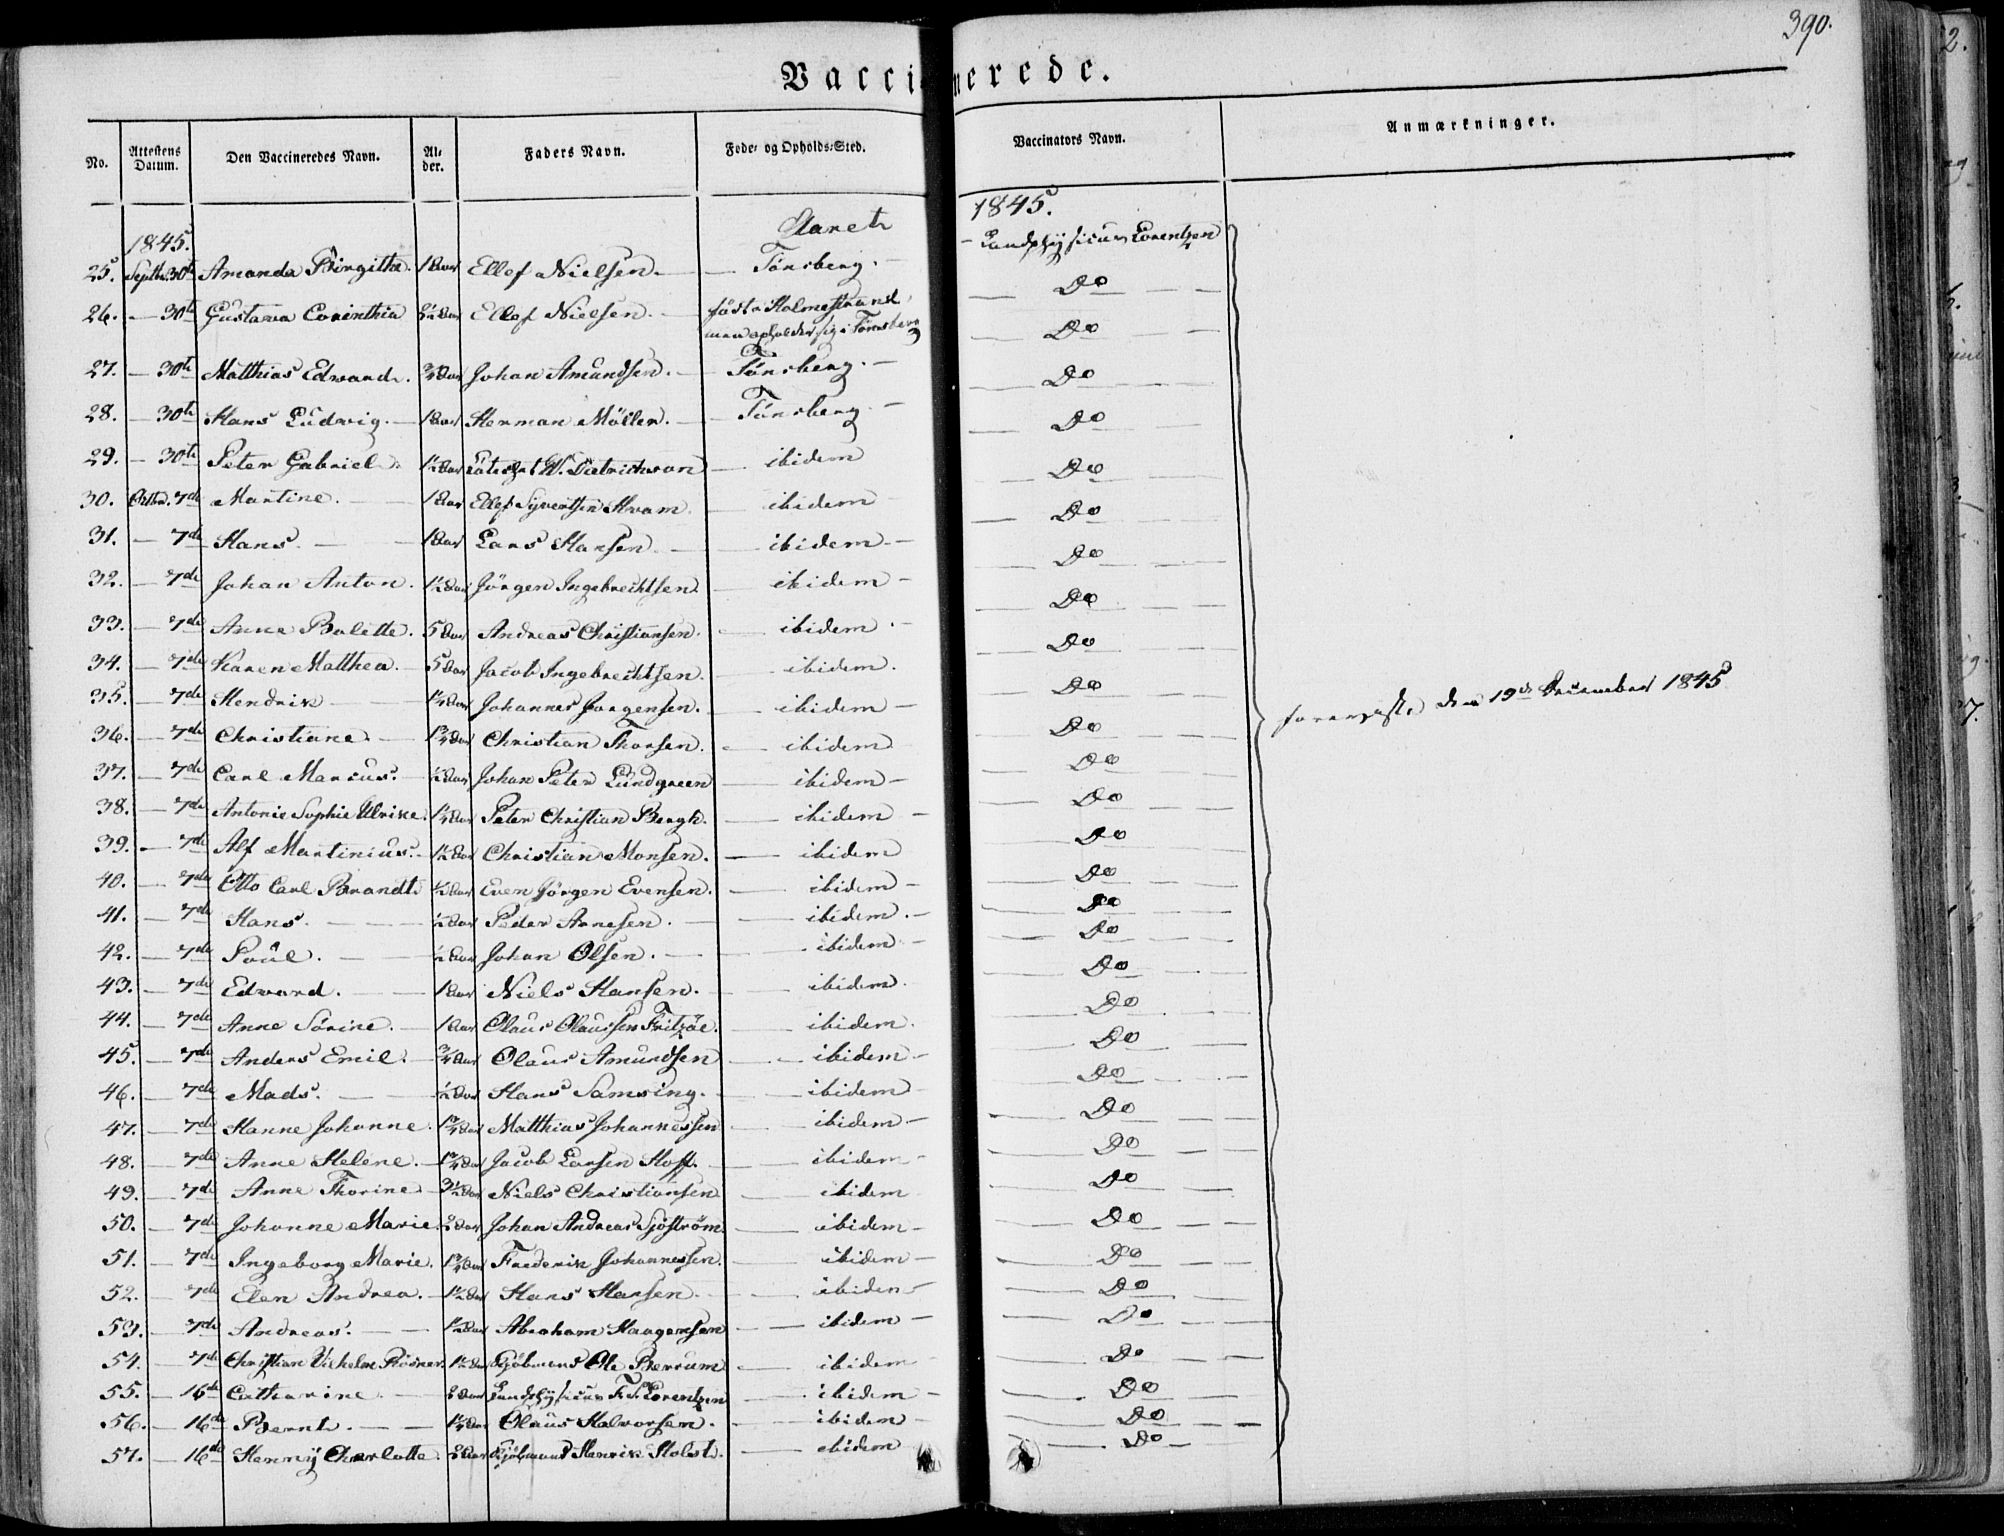 390.
Vaccinerede.
No. | Attestens Datum. | Den Vaccineredes Navn. | Alder. | Faders Navn. | Føde- og Opholds-Sted. | Vaccinators Navn. | Anmærkninger.
Aaret 1845.
1845.
25. Septbr. 30te Amanda Birgitha. 1 Aar Ellef Nielsen. Tønsberg. Landphysicus Lorentzen
26. – 30te Gustava Corinthia Aar Ellef Nielsen. født i Holmestrand men opholder sig i Tønsberg Do
27. – 30te Matthias Edvard. 3/4 Aar Johan Amundsen. Tønsberg. Do
28. – 30te Hans Ludvig. 1 Aar Herman Möller. Tønsberg. Do
29. – 30te Peter Gabriel. 1 1/2 Aar W. Dietrichson ibidem Do
30. Octbr. 7de Martine. 1 Aar Ellef Syvertsen Hvam. ibidem Do
31. – 7de Hans. 1 Aar Lars Hansen. ibidem Do
32. – 7de Johan Anton. 1 1/2 Aar Jörgen Ingebrechtsen. ibidem Do
33. – 7de Anne Bolette. 5 Aar Andreas Christiansen. ibidem Do
34. – 7de Karen Matthea. 5 Aar Jacob Ingebrechtsen. ibidem. Do
35. – 7de Hendrik 1 1/4 Aar Johannes Jörgensen. ibidem Do
36. – 7de Christiane. 1 3/4 Aar Christian Thorsen. ibidem Do
37. – 7de Carl Marcus. 1/2 Aar Johan Peter Lundgreen ibidem Do
38. – 7de Antonie Sophie Ulrike. 1 1/4 Aar Peter Christian Bergh. ibidem Do
39. – 7de Alf Martinius. 1 1/2 Aar Christian Monsen. ibidem Do
40. – 7de Otto Carl Brandt. 1/2 Aar Even Jörgen Evensen. ibidem Do
41. – 7de Hans. 1/2 Aar Peder Arnesen. ibidem. Do
42. – 7de Poul. 1/2 Aar Johan Olsen. ibidem Do
43. – 7de Edvard. 1 Aar Niels Hansen. ibidem. Do
44. – 7de Anne Sörine. 1 Aar Olaus Olaussen Fritzöe. ibidem. Do
45. – 7de Anders Emil. 3/4 Aar Olaus Amundsen ibidem Do
46. – 7de Mads. 1/2 Aar Hans Samsing. ibidem Do
47. – 7de Hanne Johanne. 1 3/4 Aar Matthias Johannessen ibidem Do
48. – 7de Anne Helene. 1 3/4 Aar Jacob Larsen Hoff. ibidem Do
49. – 7de Anne Thorine 3 1/2 Aar Niels Christiansen ibidem Do
50. – 7de Johanne Marie. 2 Aar Johan Andreas Sjöström ibidem Do
51. – 7de Ingeborg Marie. 1 3/4 Aar Frederik Johannessen. ibidem Do
52. – 7de Elen Andrea. 1 1/2 Aar Hans Hansen. ibidem Do
53. – 7de Andreas. 1 1/2 Aar Abraham Haagensen ibidem Do
54. – 7de Christian Vilhelm 1 1/2 Aar Kjöbmand Ole Berrum ibidem Do
55. – 16de Catharine 2 Aar Landphysicus F. Lorentzen ibidem Do
56. – 16de Bernt. 1 1/4 Aar Olaus Halvorsen. ibidem Do
57. – 16de Henny Charlotte. 2 Aar Kjöbmand Henrik Holst. ibidem Do
foreviste den 19de December 1845